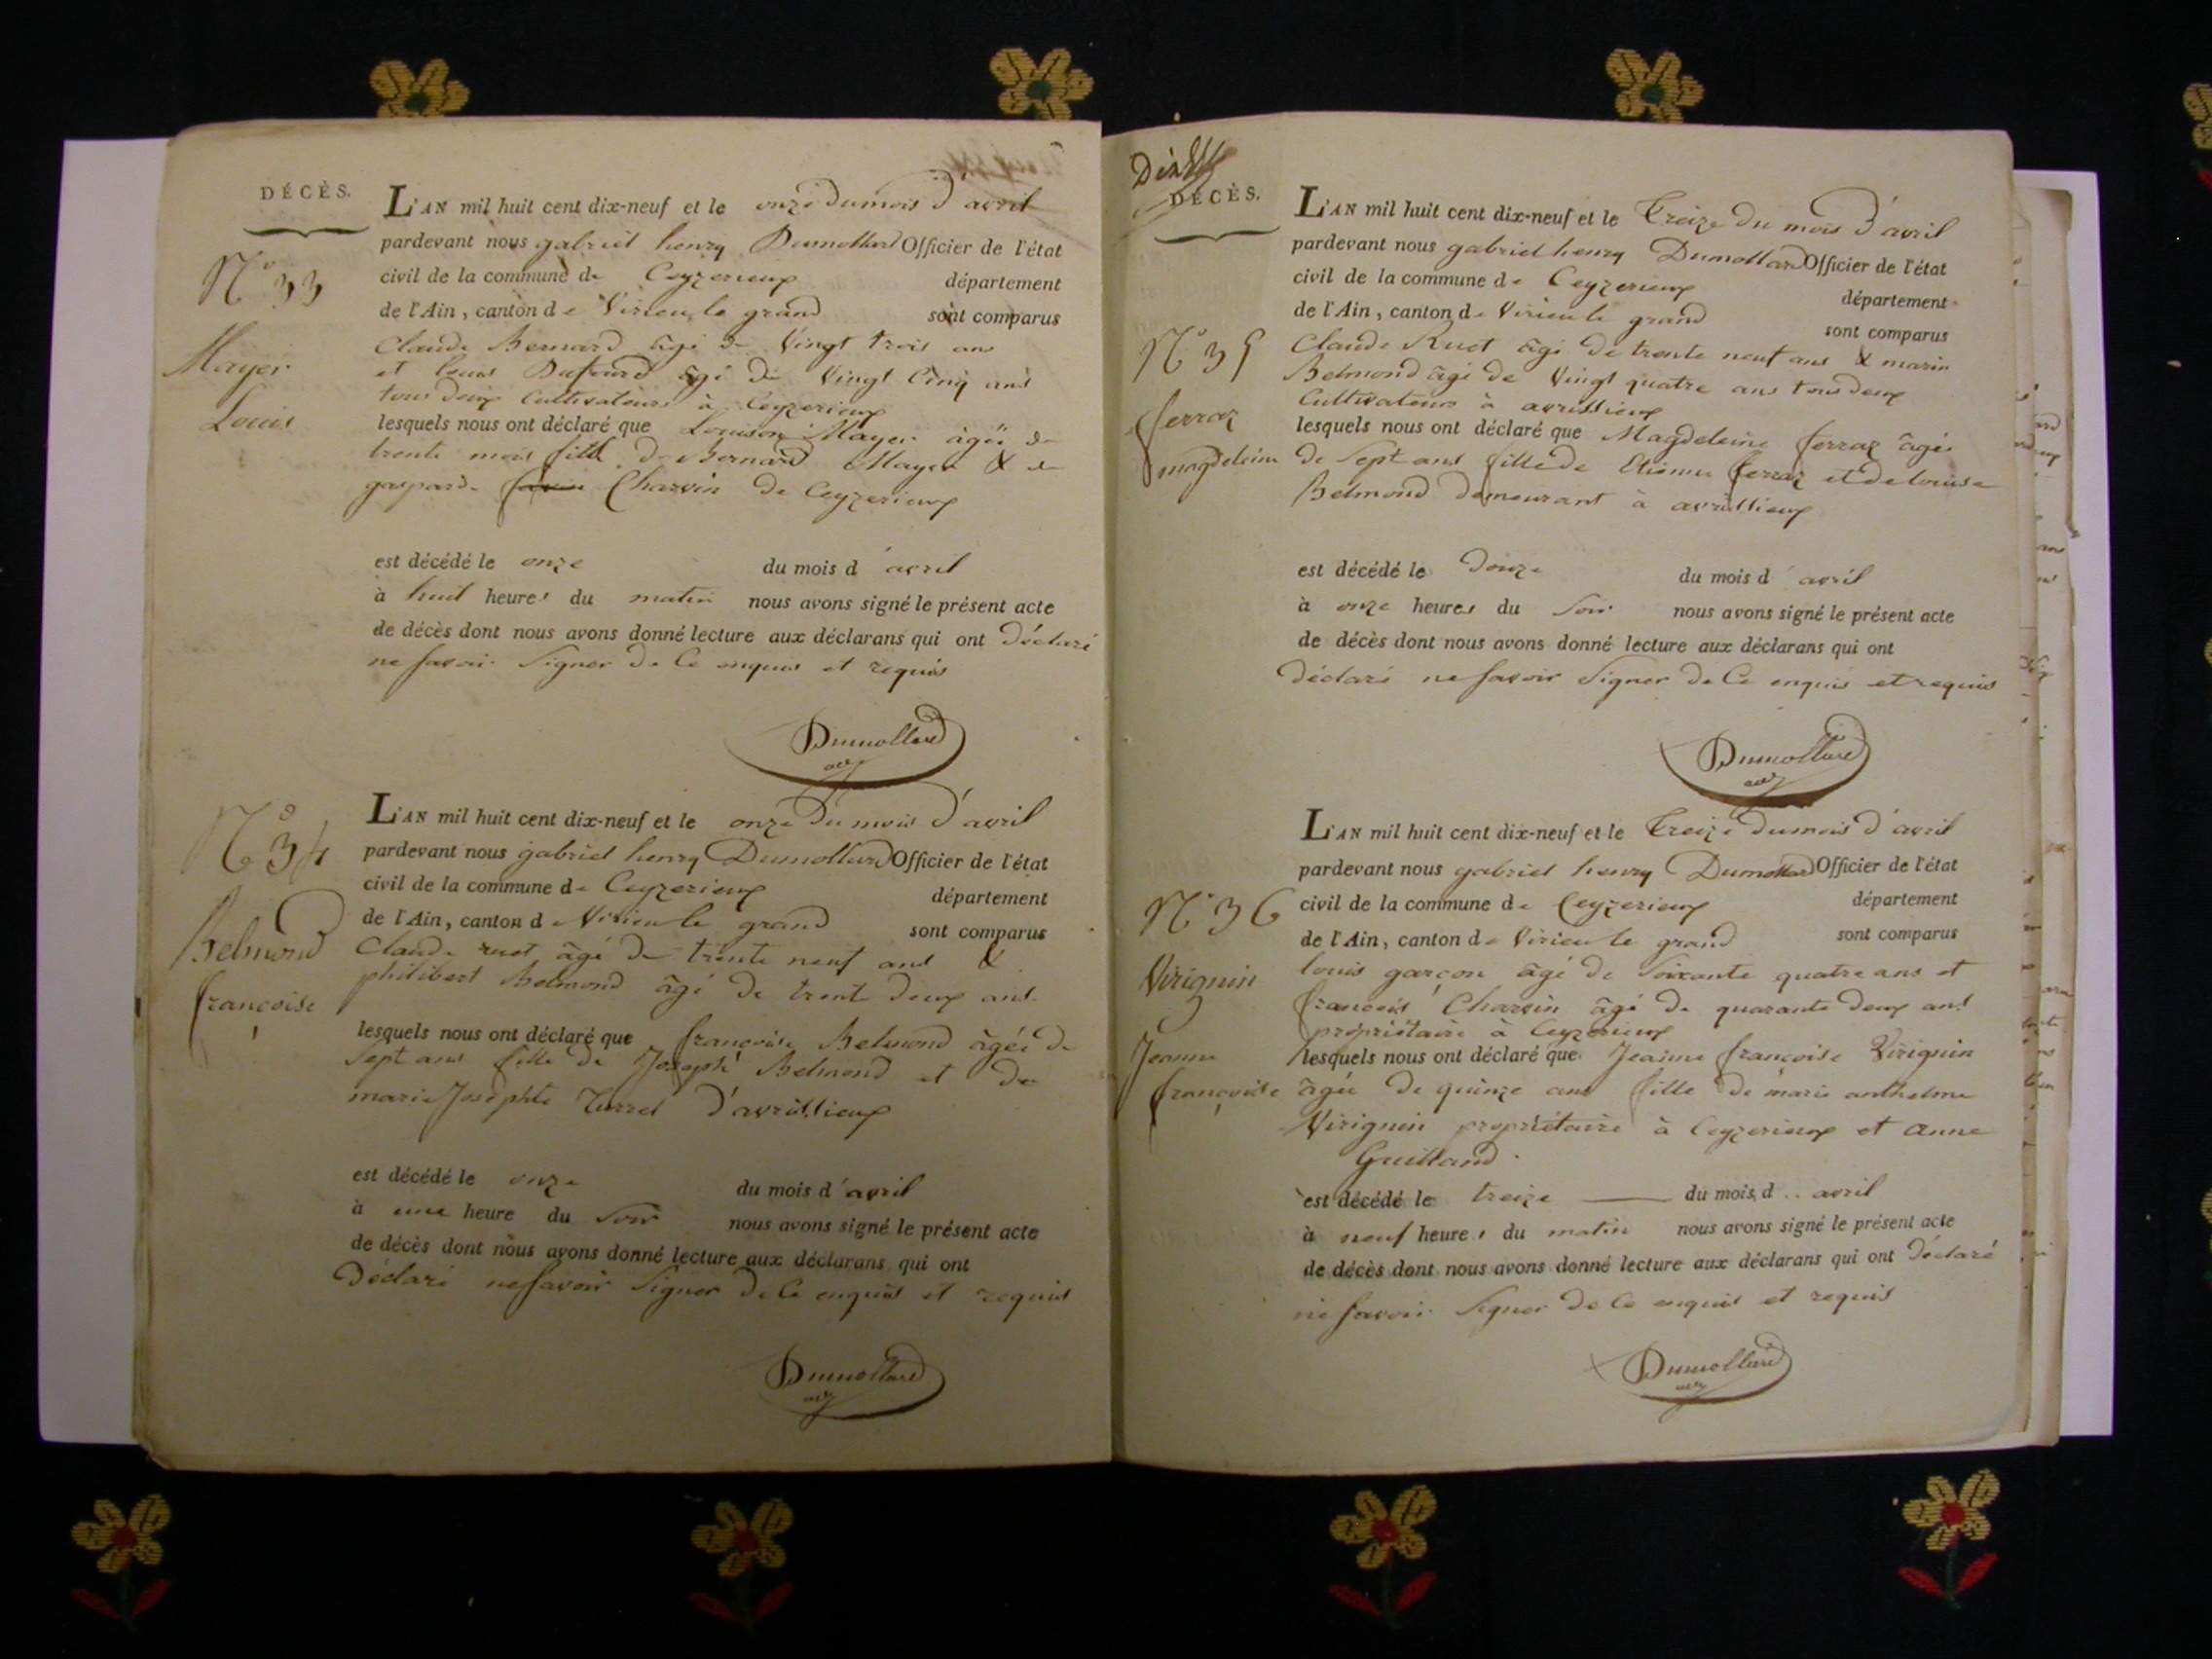 DÉCÈS.
N° 33
Mayer
Louis
L'AN mil huit cent dix-neuf et le onze du mois d'avril
pardevant nous gabriel henry Dumollard Officier de l'état
civil de la commune de Ceyzerieux département
de l'Ain, canton de Virieu le grand sont comparus
Claude Bernard âgé de Vingt trois ans
et louis Dufourd âgé de Vingt Cinq ans
tous deux Cultivateurs à Ceyzerieux
lesquels nous ont déclaré que Louison Mayer âgée de
trente mois fille de Bernard Mayer & de
gasparde Charvin de Ceyzerieux
est décédé le onze du mois d'avril
à huit heures du matin nous avons signé le présent acte
de décès dont nous avons donné lecture aux déclarans qui ont déclaré
ne savoir Signer de Ce enquis et requis
Dumollard
N° 34
Belmond
françoise
L'AN mil huit cent dix-neuf et le onze du mois d'avril
pardevant nous gabriel henry Dumollard Officier de l'état
civil de la commune de Ceyzerieux département
de l'Ain, canton d Virieu le grand sont comparus
Claude ruet âgé de trente neuf ans &
philibert Belmond âgé de trente deux ans
lesquels nous ont déclaré que françoise Belmond âgée de
Sept ans fille de Joseph Belmond et de
marie Josephte Turrel d'avrissieux
est décédé le onze du mois d'avril
à une heure du Soir nous avons signé le présent acte
de décès dont nous avons donné lecture aux déclarans qui ont
Déclaré ne savoir Signer de Ce enquis et requis
Dumollard
DÉCÈS.
N° 35
ferraz
magdeleine
L'AN mil huit cent dix-neuf et le Treize du mois d'avril
pardevant nous gabriel henry Dumollard Officier de l'état
civil de la commune de Ceyzerieux département
de l'Ain, canton de Virieu le grand sont comparus
Claude Ruet âgé de trente neuf ans & marin
Belmond âgé de Vingt quatre ans tous deux
Cultivateurs à avrissieux
lesquels nous ont déclaré que Magdeleine ferraz âgée
de Sept ans fille de Etienne ferraz et de louise
Belmond demeurant à avrissieux
est décédé le Douze du mois d'avril
à onze heures du Soir nous avons signé le présent acte
de décès dont nous avons donné lecture aux déclarans qui ont
Déclaré ne savoir Signer de Ce enquis et requis
Dumollard
N° 36
Virignin
Jeanne
françoise
L'AN mil huit cent dix-neuf et le Treize du mois d'avril
pardevant nous gabriel henry Dumollard Officier de l'état
civil de la commune de Ceyzerieux département
de l'Ain, canton de Virieu le grand sont comparus
louis garçon âgé de Soixante quatre ans et
francois Charvin âgé de quarante deux ans
propriétaire à Ceyzerieux
lesquels nous ont déclaré que Jeanne françoise Virignin
âgée de quinze ans fille de marie anthelme
Virignin propriétaire à Ceyzerieux et anne
Guilland
est décédé le treize du mois d avril
à neuf heures du matin nous avons signé le présent acte
de décès dont nous avons donné lecture aux déclarans qui ont déclaré
ne savoir Signer de Ce enquis et requis
Dumollard